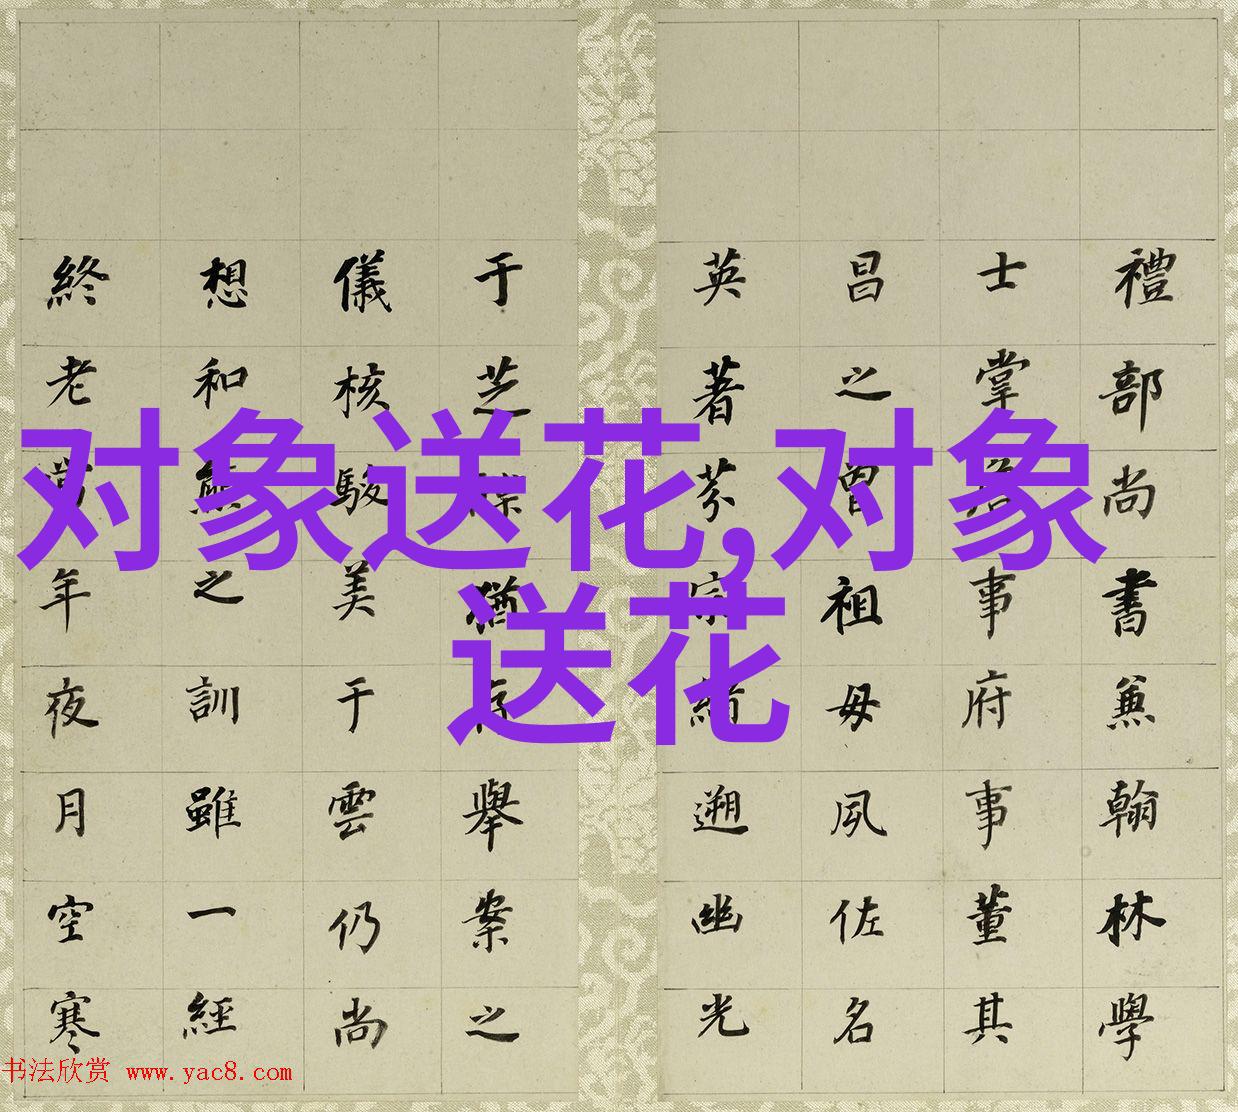 禮部尚書兼翰林學
士掌詹事府事董其
昌之曾祖母夙佐名
英著芬宗遡幽光
于芝猶存舉案之
儀核駿美于雲仍尚
想和熊之訓雖一經
終老當年夜月空寒
对象送花,对象
送花
书法欣赏 www.yac8.com